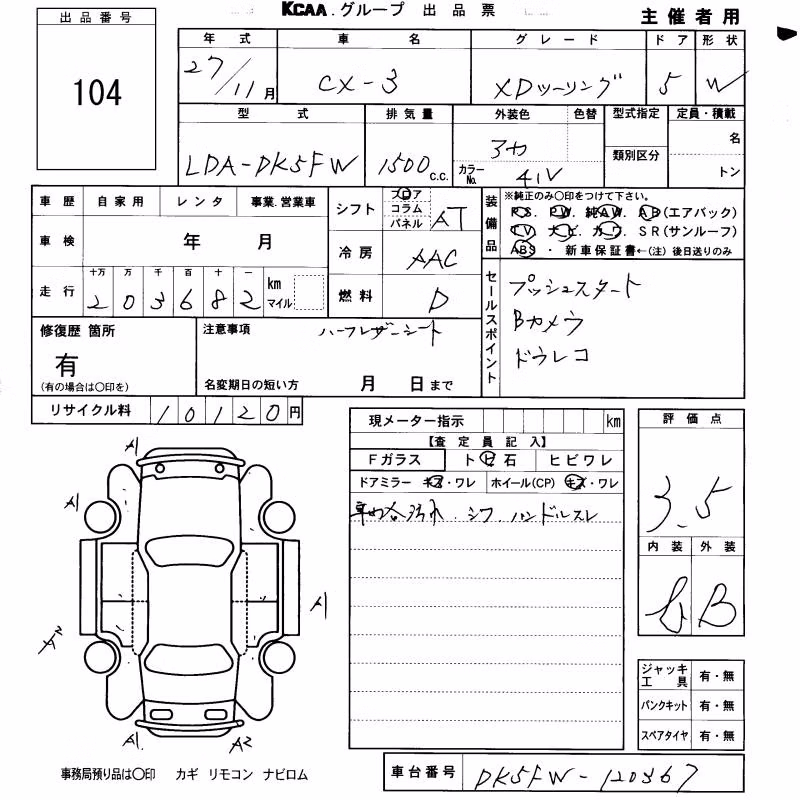 KCAA.グループ 出品票
主催者用
出品番号
104
年式 車名 グレード ドア 形状
27/11月 CX-3 XDツーリング 5 W
型式 排気量 外装色 色替 型式指定 定員・積載
LDA-DK5FW 1500c.c. アカ 類別区分 名
カラーNo. 41V トン
車歴 自家用 レンタ 事業.営業車
シフト フロア コラム パネル AT
装備品 ※純正のみ○印をつけて下さい。
PS. PW. 純AW. AB(エアバック)
TV. ナビ. カワ. SR(サンルーフ)
ABS・新車保証書←(注)後日送りのみ
車検 年 月
冷房 AAC
走行 十万 万 千 百 十 一
203682 km マイル
燃料 D
セールスポイント プッシュスタート
Bカメラ
ドラレコ
修復歴 箇所
有
(有の場合は○印を)
注意事項 ハーフレザーシート
名変期日の短い方 月 日まで
リサイクル料 10120円
現メーター指示 km
【査定員記入】
Fガラス トビ石 ヒビワレ
ドアミラー キズ・ワレ ホイール(CP) キズ・ワレ
汚れ.シワ.ハンドルスレ
評価点
3.5
内装 外装
B
ジャッキ工具 有・無
パンクキット 有・無
スペアタイヤ 有・無
A1
A1
A1
A2
A1 A2
事務局預り品は○印 カギ リモコン ナビロム
車台番号 DK5FW-120367